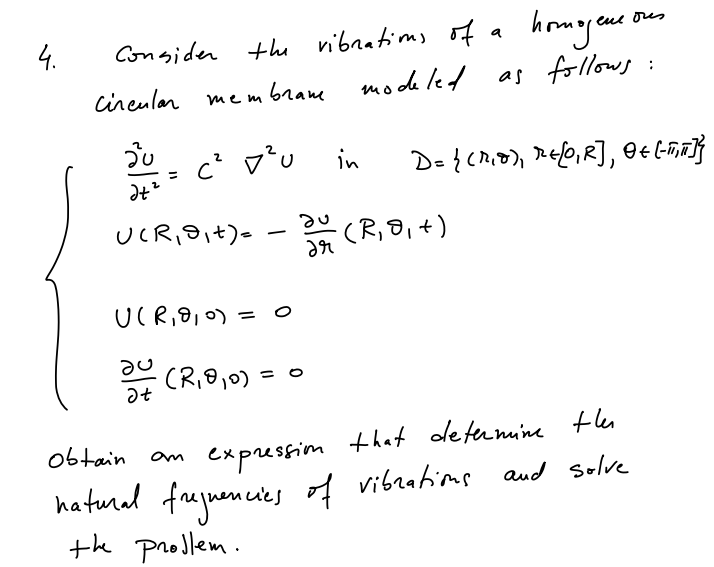 4. Consider the vibrations of a homogeneous
circular membrane modeled as follows :
∂²U/∂t² = C² ∇²U in D = {(r,θ), r∈[0,R], θ∈[-π,π]}
U(R,θ,t) = - ∂U/∂r (R,θ,t)
U(R,θ,0) = 0
∂U/∂t (R,θ,0) = 0
Obtain an expression that determine the
natural frequencies of vibrations and solve
the problem.